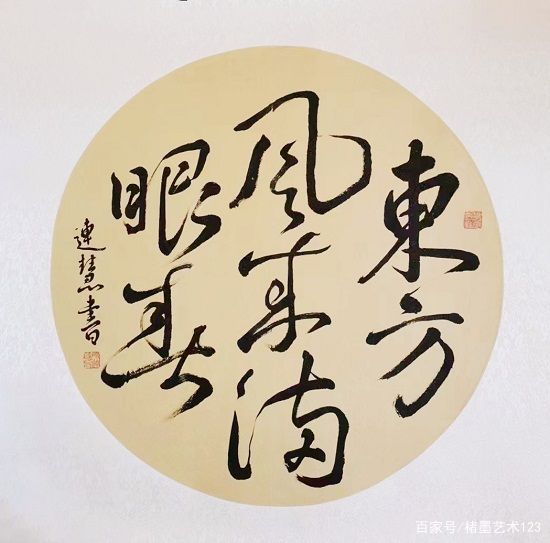 東方
風来满
眼春
連慧書
百家号/楮墨艺术123